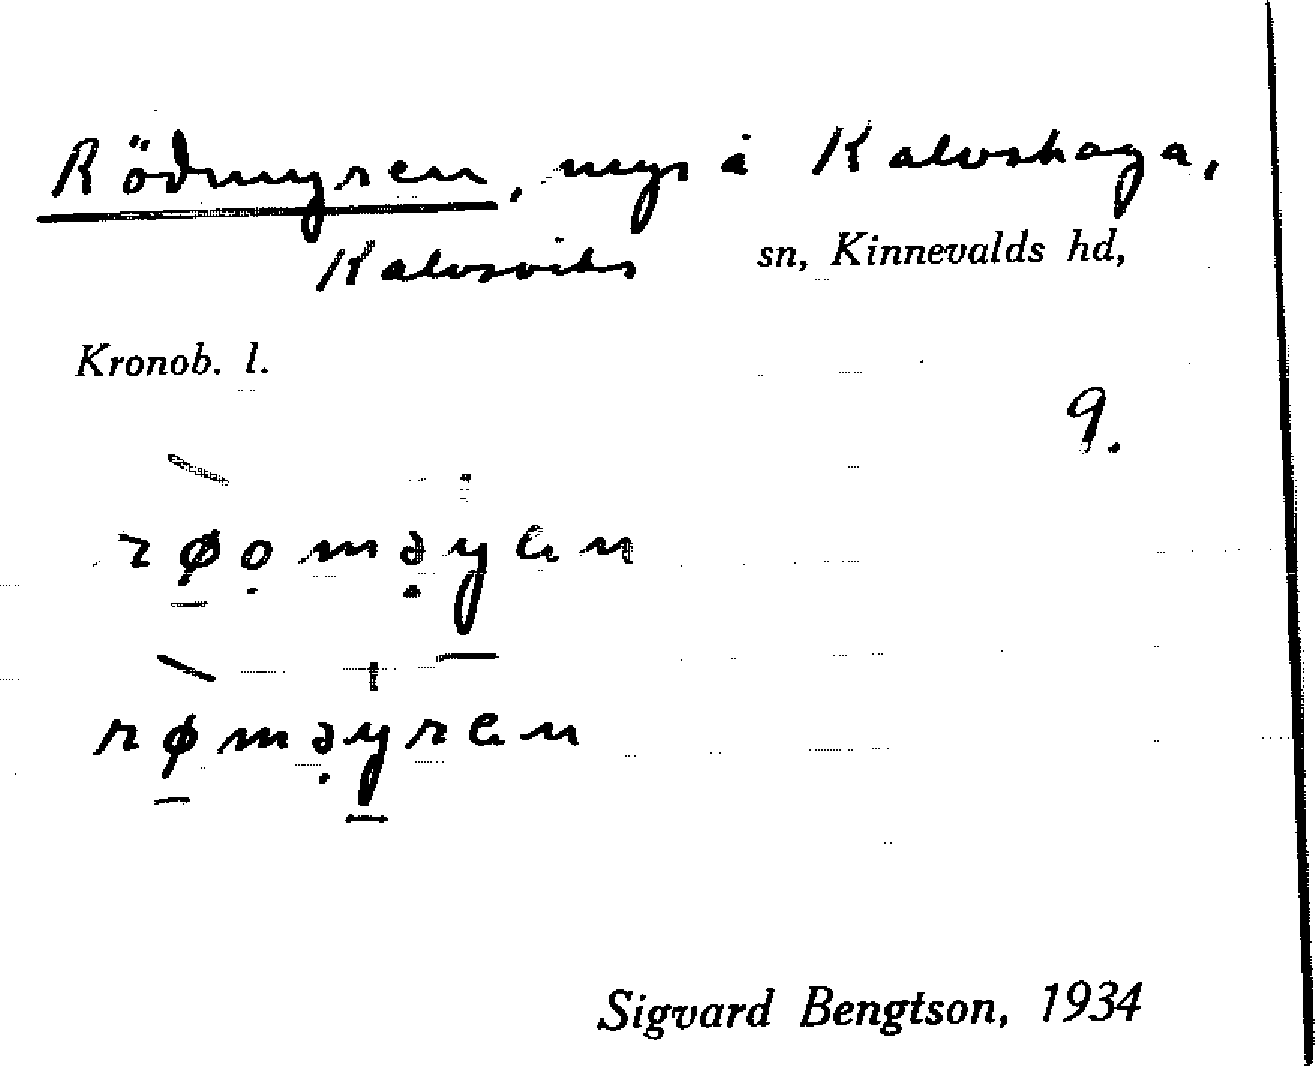 Rödmyren, myr å Kalvshaga,
Kalvsviks sn, Kinnevalds hd,
Kronob. l.
9.
røoməyen
røməyren
Sigvard Bengtson, 1934